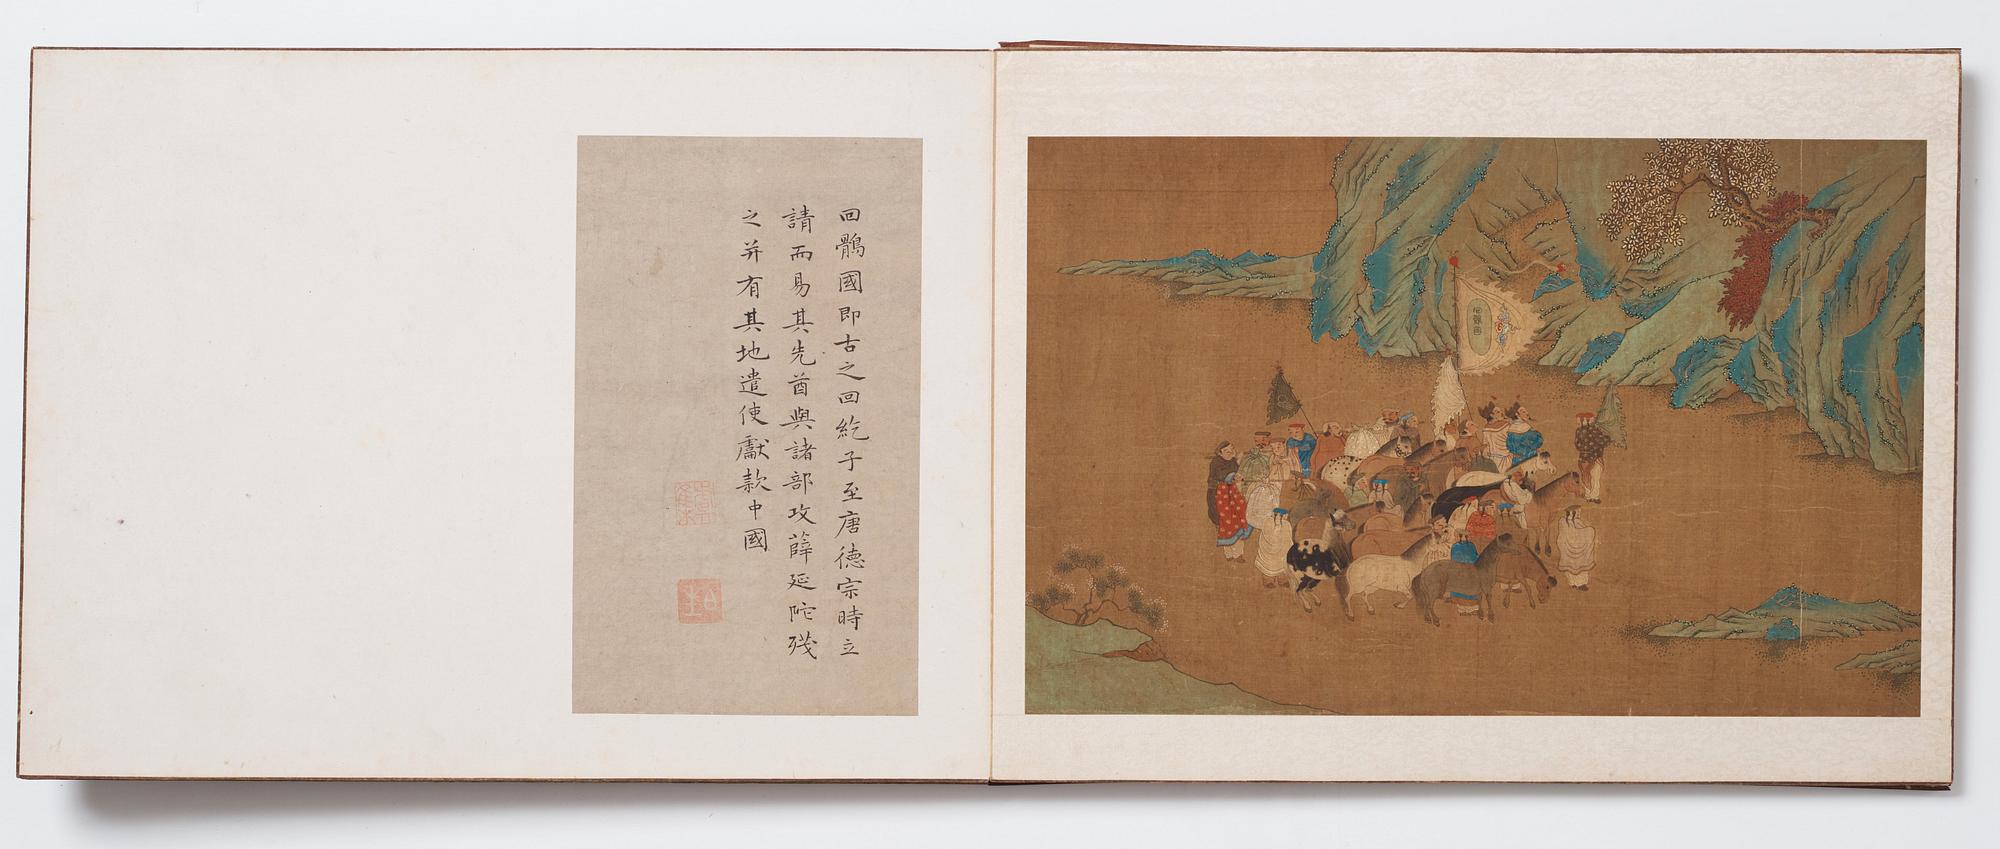 回鶻國即古之回紇子至唐德宗時立
請而易其先酋與諸部攻薛延陀殘
之并有其地遣使獻款中國
回鶻國